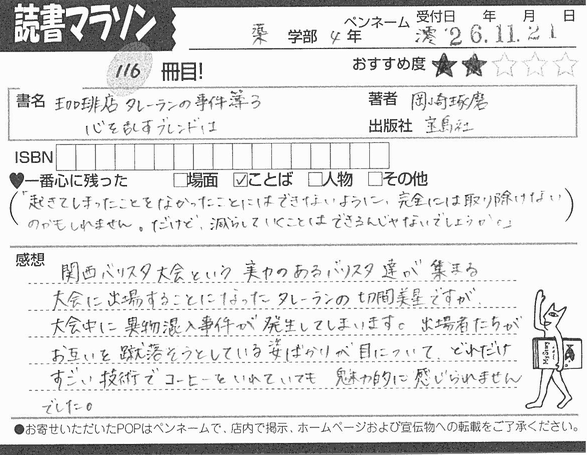 読書マラソン
薬 学部 4 年 ペンネーム 澪 受付日 年 月 日
'26.11.21
116 冊目!
おすすめ度 ★★☆☆☆
書名 珈琲店タレーランの事件簿3
心を乱すブレンドは
著者 岡崎琢磨
出版社 宝島社
ISBN
♥一番心に残った □場面 ☑ことば □人物 □その他
(「起きてしまったことをなかったことにはできないように、完全には取り除けない
のかもしれません。だけど、減らしていくことはできるんじゃないでしょうか。」)
感想
関西バリスタ大会という実力のあるバリスタ達が集まる
大会に出場することになったタレーランの切間美星ですが、
大会中に異物混入事件が発生してしまいます。出場者たちが
お互いを蹴落そうとしている姿ばかりが目について、どれだけ
すごい技術でコーヒーをいれていても魅力的に感じられません
でした。
●お寄せいただいたPOPはペンネームで、店内で掲示、ホームページおよび宣伝物への転載をご了承ください。